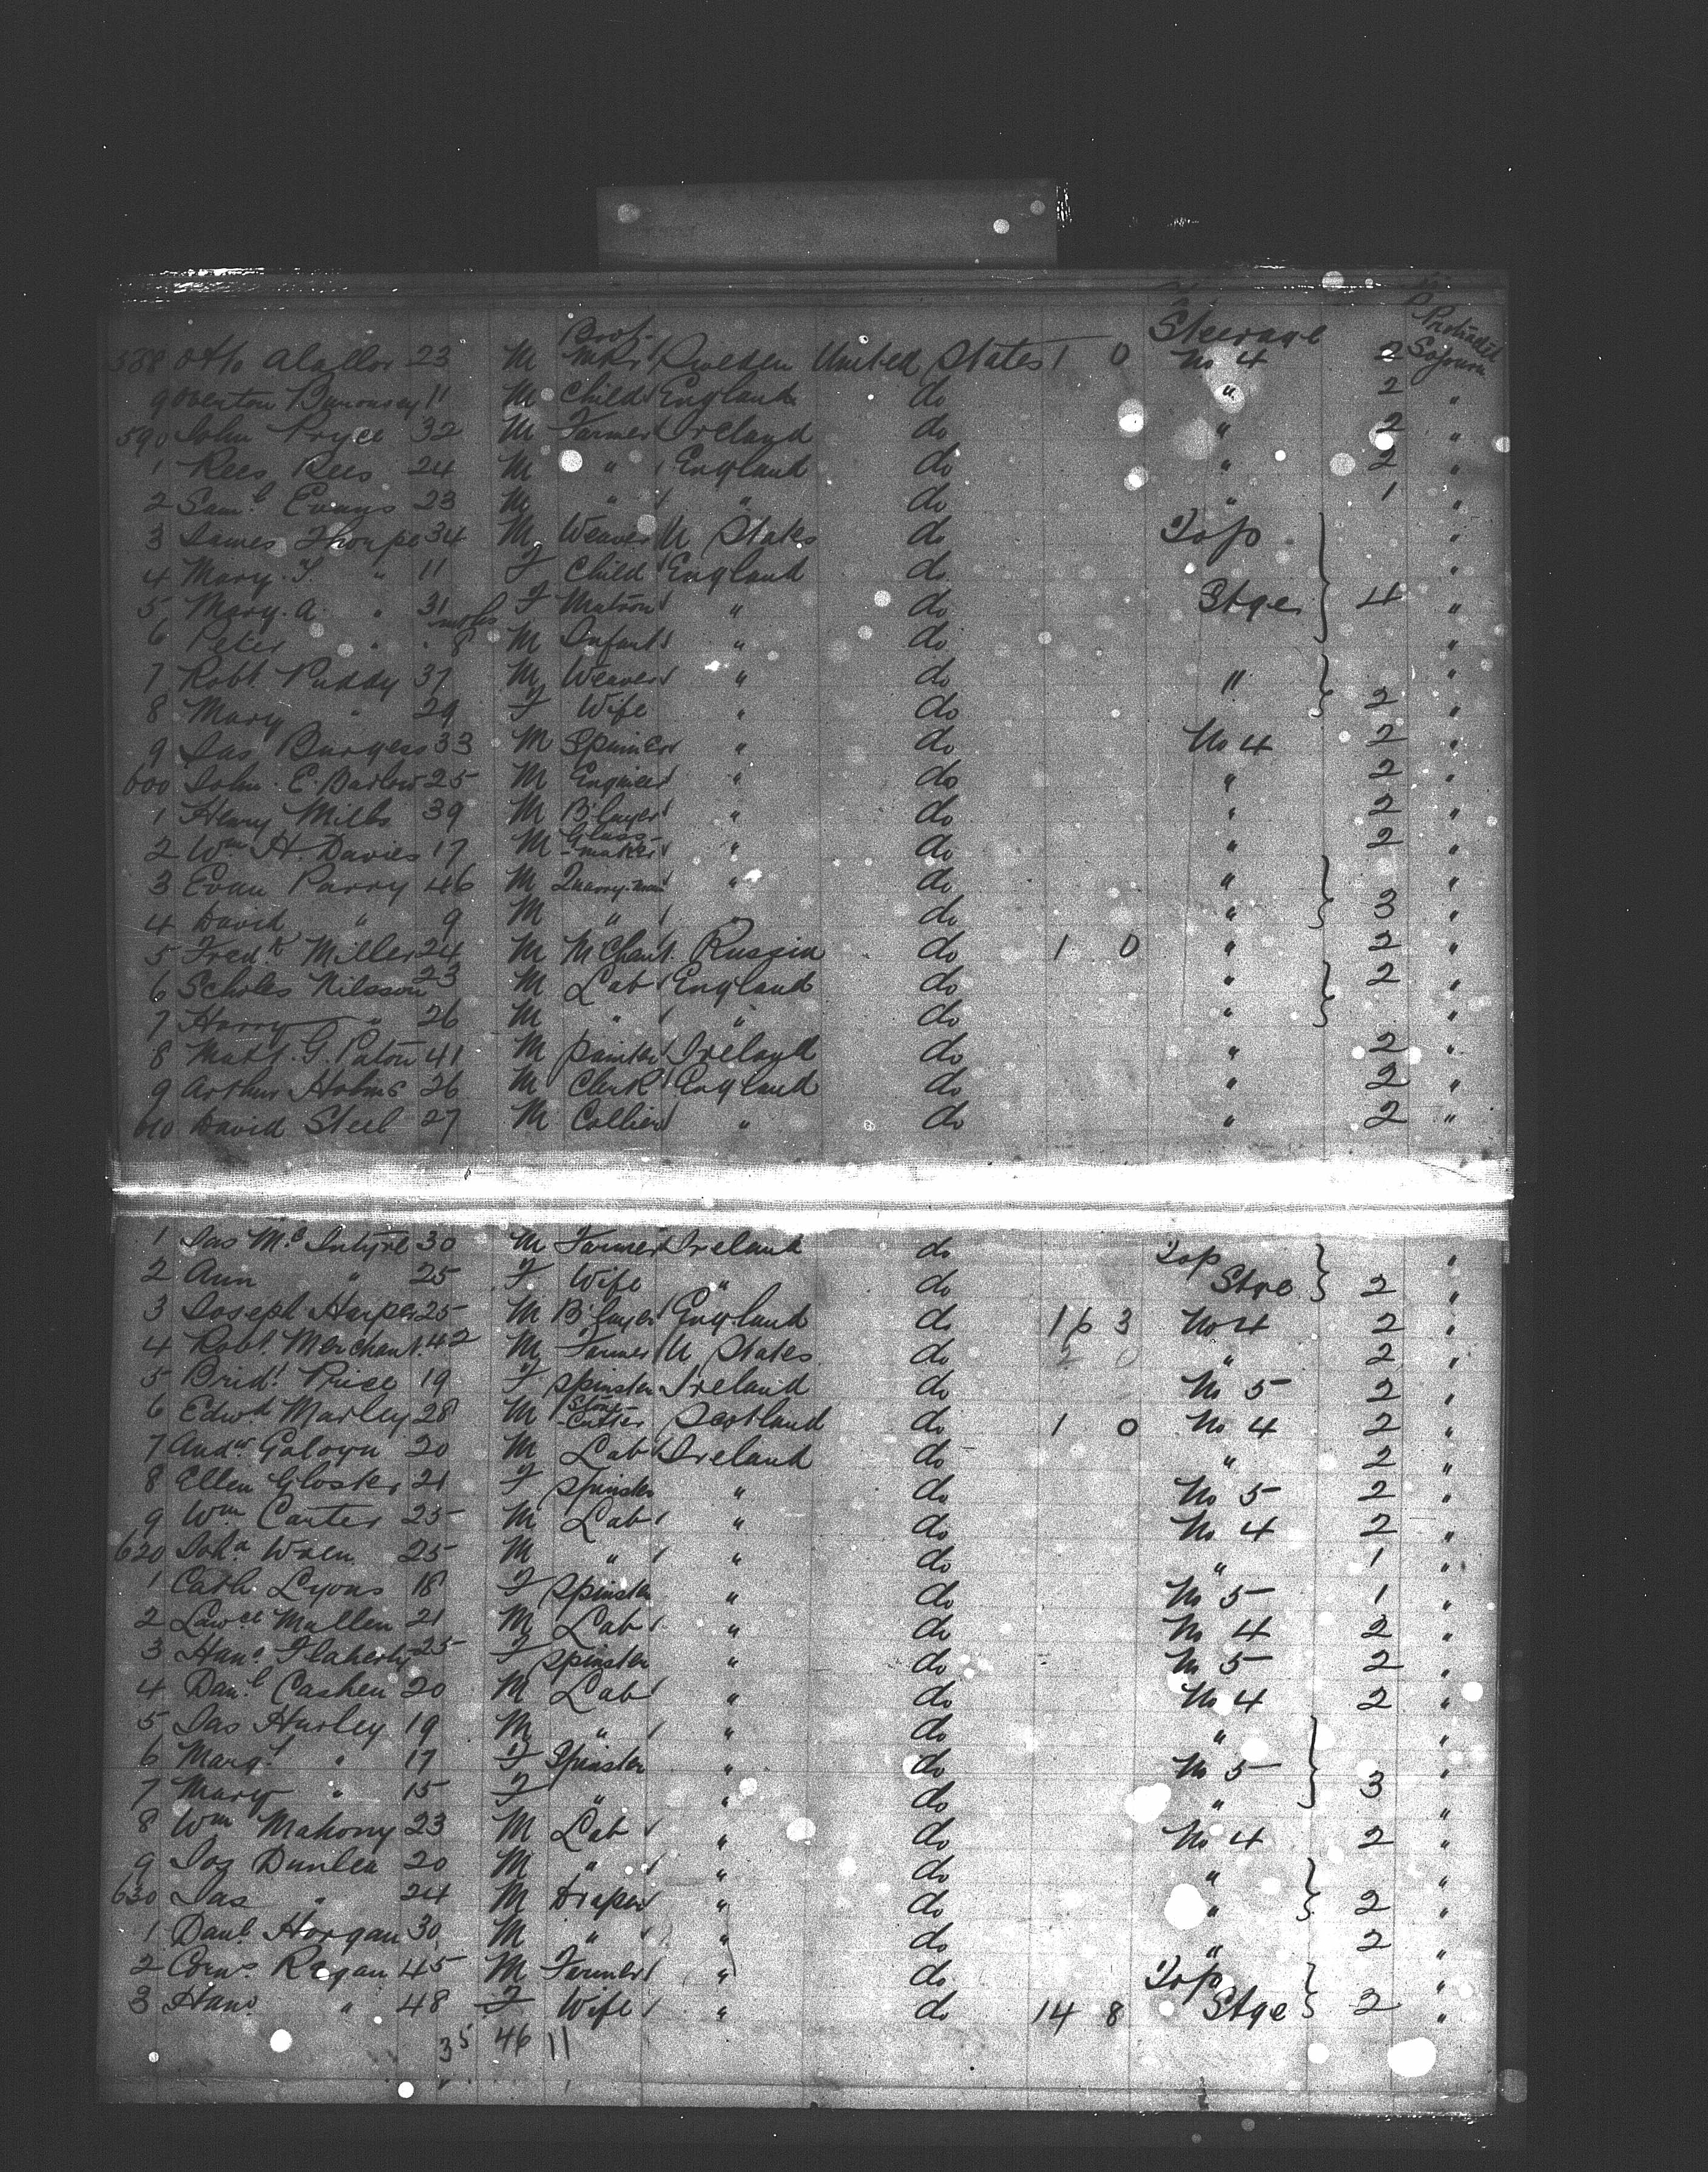 Steerage Protracted
588 Otto 23 M Boot-mkr Sweden United States 1 0 No 4 2 Sojourn
9 Overton 11 M Child England do " 2 "
590 John Pryce 32 M Farmer Ireland do " 2 "
1 Rees Rees 24 M " England do " 2 "
2 Saml Evans 23 M " " do " 1 "
3 James Thorpe 34 M Weaver U States do Top "
4 Mary. T. " 11 F Child England do "
5 Mary. A. " 31 F Matron " do Stge 4 "
6 Peter " mths 8 M Infant " do "
7 Robt Puddy 37 M Weaver " do " "
8 Mary " 29 F Wife " do 2 "
9 Jas Burgess 33 M Spinner " do No 4 2 "
600 John E. Barlow 25 M Engineer " do " 2 "
1 Henry Mills 39 M B'layer " do " 2 "
2 Wm H. Davies 17 M Glass-maker " do " 2 "
3 Evan Parry 46 M Quarry-man " do " "
4 David " 9 M " " do " 3 "
5 Fredk Miller 24 M Mchant Russia do 1 0 " 2 "
6 Scholes Nilsson 23 M Lab England do " 2 "
7 Harry " 26 M " " do " "
8 Matt. G. Paton 41 M painter Ireland do " 2 "
9 Arthur Holmes 26 M Clerk England do " 2 "
610 David Steel 27 M Collier " do " 2 "
1 Jas McIntyre 30 M Farmer Ireland do Top "
2 Ann " 25 F Wife " do Stge 2 "
3 Joseph Harper 25 M B'layer England do 16 3 No 4 2 "
4 Robt Merchant 42 M Farmer U States do 2 0 " 2 "
5 Bridt Price 19 F Spinster Ireland do No 5 2 "
6 Edwd Marley 28 M Stone-Cutter Scotland do 1 0 No 4 2 "
7 Andw Galvyn 20 M Lab Ireland do " 2 "
8 Ellen Gloster 21 F Spinster " do No 5 2 "
9 Wm Carter 25 M Lab " do No 4 2 "
620 Joha Wren 25 M " " do " 1 "
1 Cath Lyons 18 F Spinster " do No 5 1 "
2 Lawce Mullen 21 M Lab " do No 4 2 "
3 Hana Flaherty 25 F Spinster " do No 5 2 "
4 Danl Cashen 20 M Lab " do No 4 2 "
5 Jas Hurley 19 M " " do " "
6 Margt " 17 F Spinster " do No 5 "
7 Mary " 15 F " " do " 3 "
8 Wm Mahony 23 M Lab " do No 4 2 "
9 Jos Dunlea 20 M " " do " "
630 Jas " 24 M Draper " do " 2 "
1 Danl Horgan 30 M " " do " 2 "
2 Corns Regan 45 M Farmer " do Top "
3 Hano " 48 F Wife " do 14 8 Stge 2 "
35 46 11